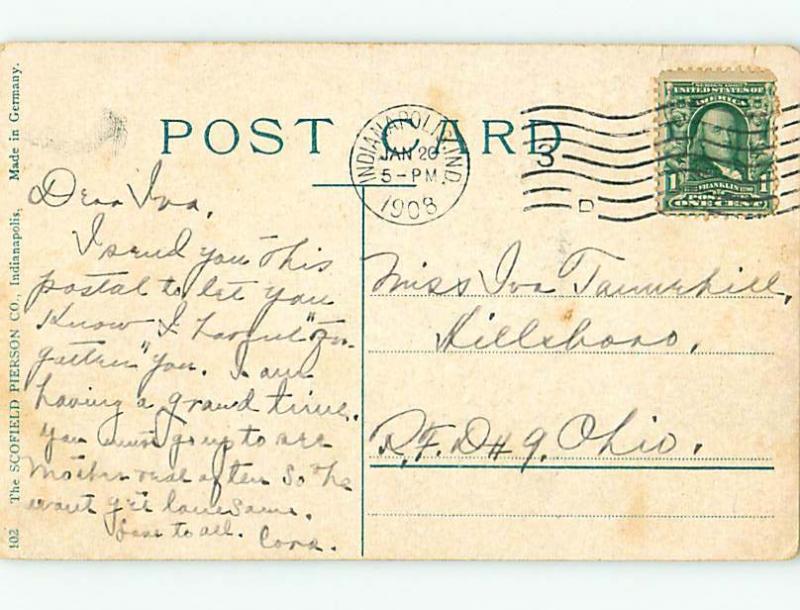 POST CARD
INDIANAPOLIS, IND.
JAN 20
5-PM
1908
3
D
SERIES 1902
UNITED STATES OF
AMERICA
1 FRANKLIN 1
POSTAGE
ONE CENT
102 The SCOFIELD PIERSON CO., Indianapolis. Made in Germany.
Dear Iva,
I send you this
postal to let you
Know I havent "for
gotten" you. I am
having a grand time.
You must go up to see
Mother real often so she
wont get lonesome.
Love to all. Cora.
Miss Iva Tannehill,
Hillsboro,
R.F.D # 9. Ohio.